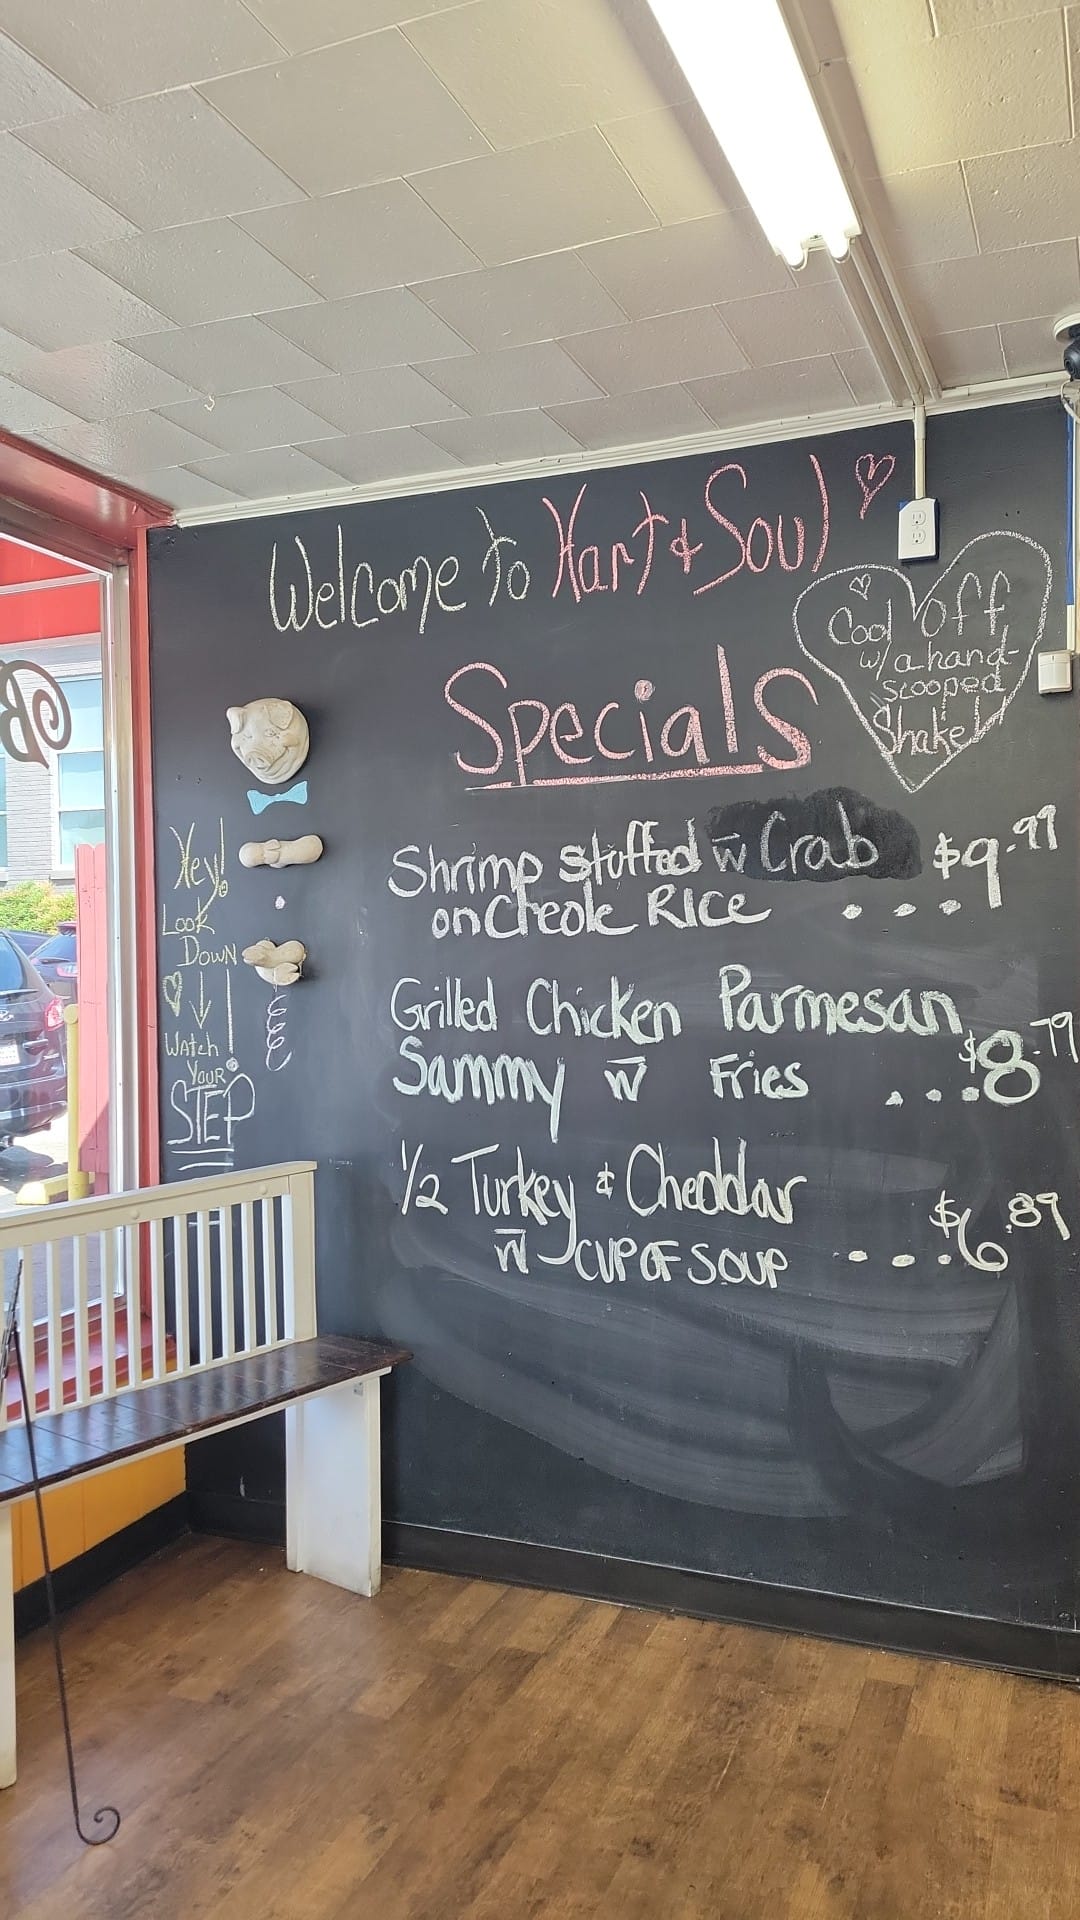 Welcome to Hart & Soul
Cool off
w/ a hand-
scooped
Shake!
Specials
Shrimp stuffed w̄ Crab $9.99
on Creole Rice ...
Grilled Chicken Parmesan
Sammy w̄ Fries ...$8.79
1/2 Turkey & Cheddar
w̄ CUP OF SOUP ...$6.89
Hey!
Look
Down
Watch
Your
STEP
B